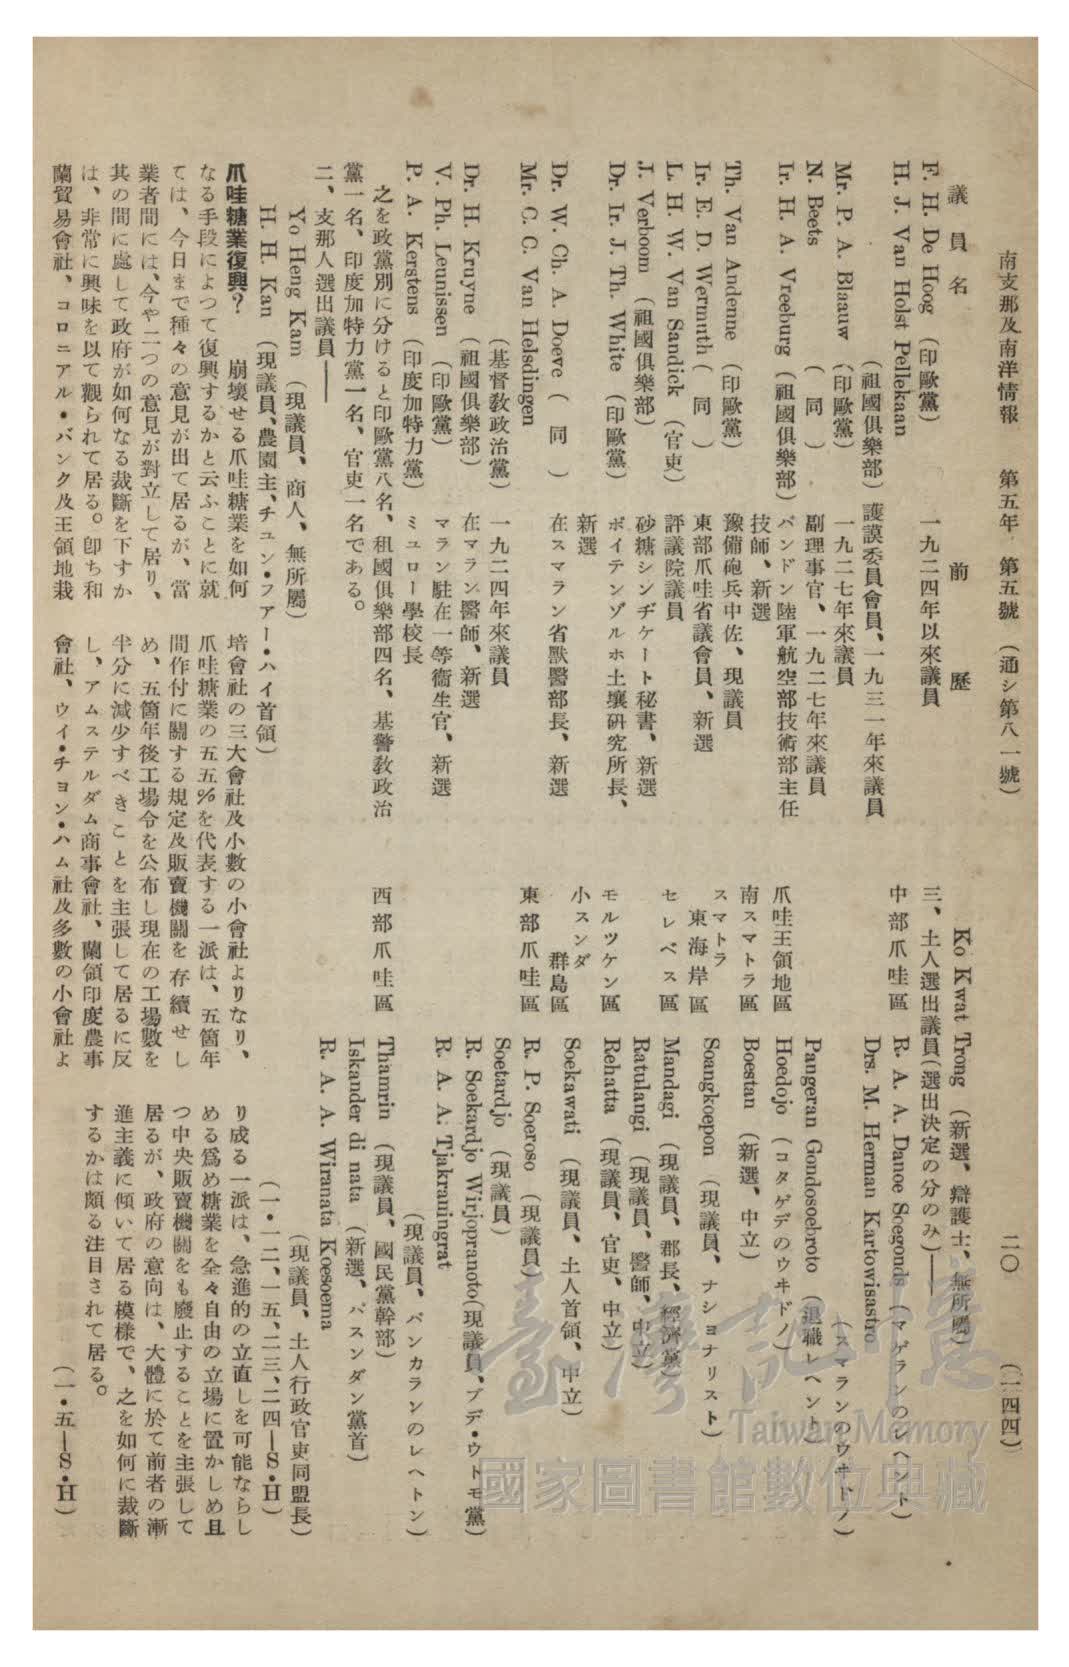 南支那及南洋情報　第五年　第五號　（通シ第八一號）　二〇　（二四四）
議員名　前　歷
F. H. De Hoog （印歐黨）
H. J. Van Holst Pellekaan　一九二四年以來議員
（祖國俱樂部）　護謨委員會員、一九三一年來議員
Mr. P. A. Blaauw （印歐黨）　一九二七年來議員
N. Beets　（　同　）　副理事官、一九二七年來議員
Ir. H. A. Vreeburg （祖國俱樂部）　バンドン陸軍航空部技術部主任
技師、新選
Th. Van Andenne （印歐黨）　豫備砲兵中佐、現議員
Ir. E. D. Wermuth （　同　）　東部爪哇省議會員、新選
L. H. W. Van Sandick （官吏）　評議院議員
J. Verboom （祖國俱樂部）　砂糖シンヂケート秘書、新選
Dr. Ir. J. Th. White （印歐黨）　ボイテンゾルホ土壤研究所長、
新選
Dr. W. Ch. A. Doeve （　同　）　在スマラン省獸醫部長、新選
Mr. C. C. Van Helsdingen
（基督敎政治黨）　一九二四年來議員
Dr. H. Kruyne （祖國俱樂部）　在マラン醫師、新選
V. Ph. Leunissen （印歐黨）　マラン駐在一等衞生官、新選
P. A. Kerstens （印度加特力黨）　ミュロー學校長
之を政黨別に分けると印歐黨八名、租國俱樂部四名、基督敎政治
黨一名、印度加特力黨一名、官吏一名である。
二、支那人選出議員——
Yo Heng Kam （現議員、商人、無所屬）
H. H. Kan （現議員、農園主、チュン・フアー・ハイ首領）
Ko Kwat Trong （新選、辯護士、無所屬）
三、土人選出議員（選出決定の分のみ）——
中部爪哇區　R. A. A. Danoe Soegondo （マゲランのレヘント）
Drs. M. Herman Kartowisastro
（スマランのウヰドノ）
Pangeran Gondosoebroto （退職レヘント）
爪哇王領地區　Hoedojo （コタゲデのウヰドノ）
南スマトラ區　Boestan （新選、中立）
スマトラ
東海岸區　Soangkoepon （現議員、ナショナリスト）
セレベス區　Mandagi （現議員、郡長、經濟黨）
Ratulangi （現議員、醫師、中立）
モルツケン區　Rehatta （現議員、官吏、中立）
小スンダ
群島區　Soekawati （現議員、土人首領、中立）
東部爪哇區　R. P. Soeroso （現議員）
Soetardjo （現議員）
R. Soekardjo Wirjopranoto（現議員、ブデ・ウトモ黨）
R. A. A. Tjakraningrat
（現議員、バンカランのレヘトン）
西部爪哇區　Thamrin （現議員、國民黨幹部）
Iskander di nata （新選、パスンダン黨首）
R. A. A. Wiranata Koesoema
（現議員、土人行政官吏同盟長）
（一・一二、一五、二三、二四—S・H）
爪哇糖業復興？　崩壞せる爪哇糖業を如何
なる手段によつて復興するかと云ふことに就
ては、今日まで種々の意見が出て居るが、當
業者間には、今や二つの意見が對立して居り、
其の間に處して政府が如何なる裁斷を下すか
は、非常に興味を以て觀られて居る。卽ち和
蘭貿易會社、コロニアル・バンク及王領地栽
培會社の三大會社及小數の小會社よりなり、
爪哇糖業の五五％を代表する一派は、五箇年
間作付に關する規定及販賣機關を存續せし
め、五箇年後工場令を公布し現在の工場數を
半分に減少すべきことを主張して居るに反
し、アムステルダム商事會社、蘭領印度農事
會社、ウイ・チヨン・ハム社及多數の小會社よ
り成る一派は、急進的の立直しを可能ならし
める爲め糖業を全々自由の立場に置かしめ且
つ中央販賣機關をも廢止することを主張して
居るが、政府の意向は、大體に於て前者の漸
進主義に傾いて居る模樣で、之を如何に裁斷
するかは頗る注目されて居る。
（一・五—S・H）
臺灣記憶
Taiwan Memory
國家圖書館數位典藏